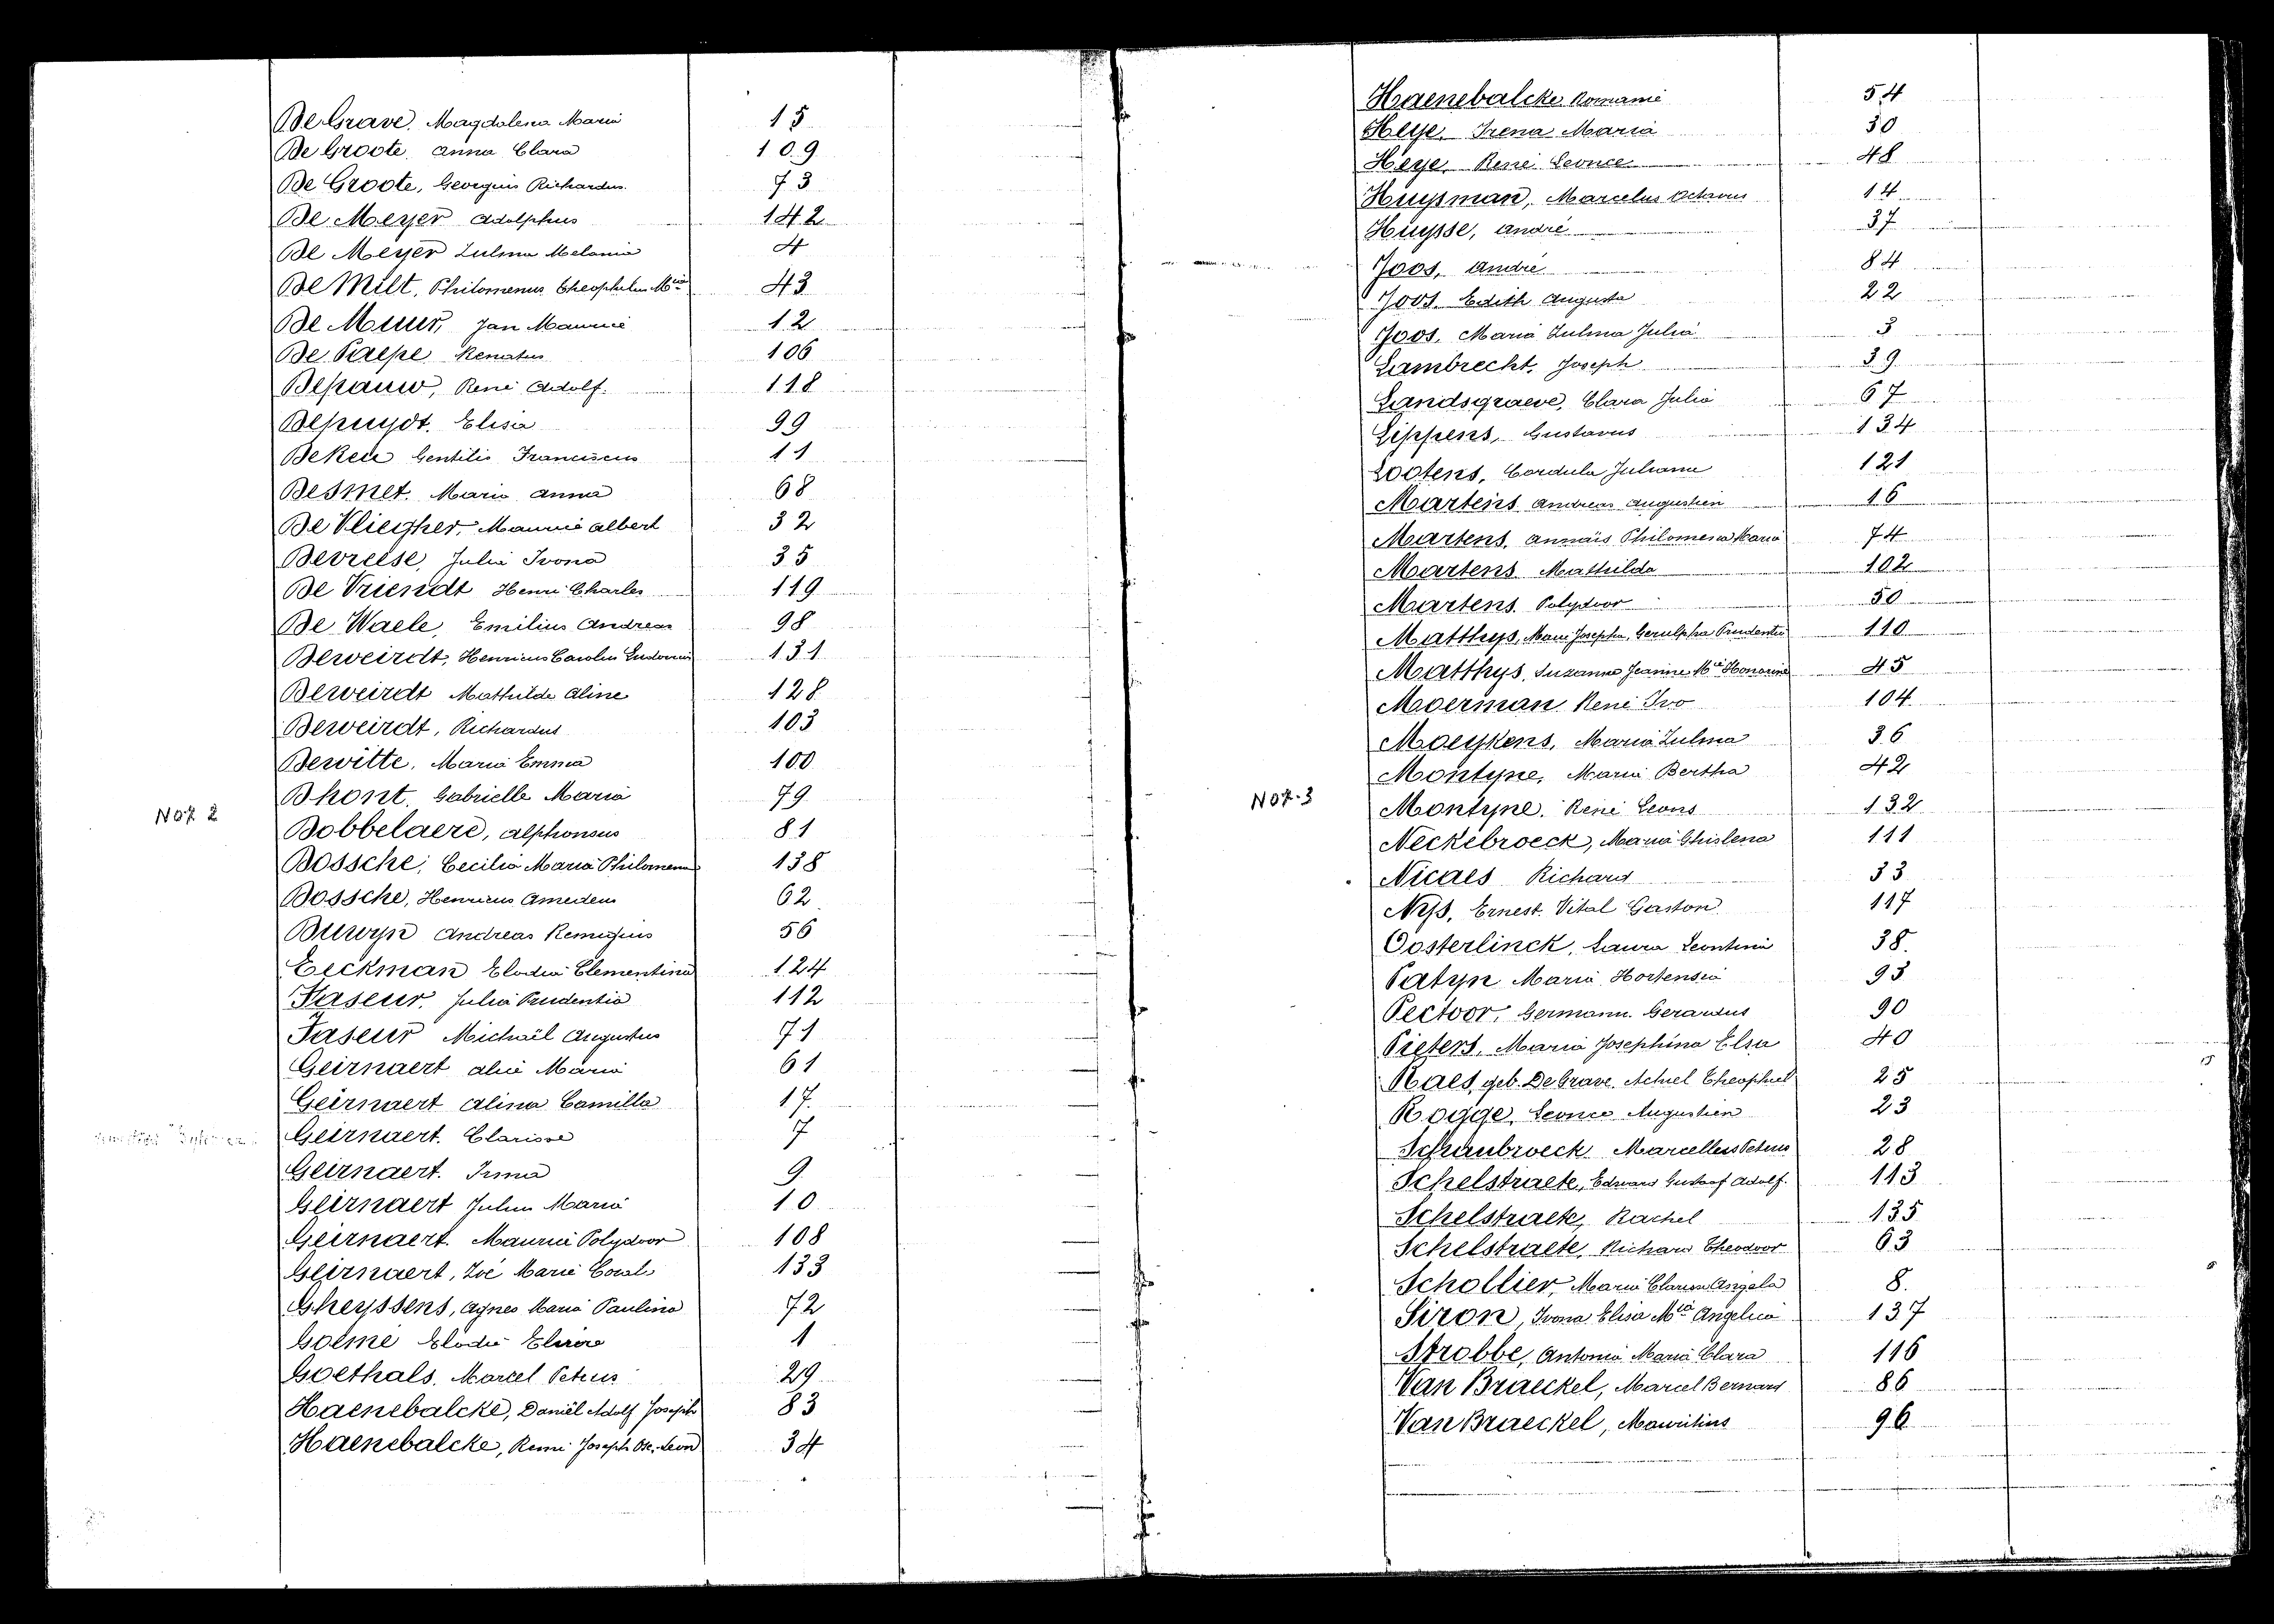 De Grave, Magdalena Maria 15
De Groote, Anna Clara 109
De Groote, Georgius Richardus 73
De Meyer Adolphus 142
De Meyer Zulma Melania 4
De Milt, Philomenus Theophilus Mia 43
De Muur, Jan Maurice 12
De Paepe Renatus 106
Depauw, René Adolf. 118
Depuydt, Elisa 99
De Keu Gentilis Franciscus 11
Desmet, Maria Anna 68
De Vliegher, Maurice Albert 32
Devreese, Julia Ivona 35
De Vriendt Henri Charles 119
De Waele, Emilius Andreas 98
Deweirdt, Henricus Carolus Ludovicus 131
Deweirdt Mathilde Aline 128
Deweirdt, Richardus 103
Dewitte, Maria Emma 100
Dhont, Gabrielle Maria 79
No 2
Dobbelaere, Alphonsus 81
Dossche, Cecilia Maria Philomena 138
Dossche, Henricus Amedeus 62
Duwyn Andreas Remigius 56
Eeckman Elodia Clementina 124
Faseur, Julia Prudentia 112
Faseur Michaël Augustus 71
Geirnaert Alice Maria 61
Geirnaert Alina Camilla 17
Geirnaert, Clarisse 7
Geirnaert, Irma 9
Geirnaert Julien Maria 10
Geirnaert, Maurice Polydoor 108
Geirnaert, Zoé Marie Coral 133
Gheyssens, Agnes Maria Paulina 72
Goeme Elodie 1
Goethals, Marcel Petrus 29
Haenebalcke, Daniël Adolf Joseph 83
Haenebalcke, Remi Joseph Leon 34
Haenebalcke Romanie 54
Heye, Irena Maria 30
Heye, René Leonce 48
Huysman, Marcelus Octavus 14
Huysse, André 37
Joos, André 84
Joos, Edith Augusta 22
Joos, Maria Zulma Julia 3
Lambrecht, Joseph 39
Landsgraeve, Clara Julia 67
Lippens, Gustavus 134
Lootens, Cordula Juliana 121
Martens Andreas Augustien 16
Martens, Annaïs Philomena Maria 74
Martens Mathilda 102
Martens Polydoor 50
Matthys, Marie Josepha, Gerulpha Prudentia 110
Matthys, Suzanna Jeanine Mie Honorine 45
Moerman René Ivo 104
Moeykens, Maria Zulma 36
Montyne, Maria Bertha 42
No 3
Montyne, René Leons 132
Neckebroeck, Maria Ghislena 111
Nicaes Richard 33
Nys, Ernest Vital Gaston 117
Oosterlinck, Laura Leontina 38
Patyn Maria Hortensia 93
Pectoor, Germann Gerardus 90
Pieters, Maria Josephina Elsa 40
Raes, geb. De Grave, Achiel Theophiel 25
Rogge, Leonce Augustien 23
Schaubroeck Marcellus Petrus 28
Schelstraete, Edward Gustaaf Adolf. 113
Schelstraete, Rachel 135
Schelstraete, Richard Theodoor 63
Schollier, Maria Clarisse Angela 8.
Siron, Ivona Elisa Mia Angelica 137
Strobbe, Antonia Maria Clara 116
Van Braeckel, Marcel Bernard 86
Van Braeckel, Mauritius 96